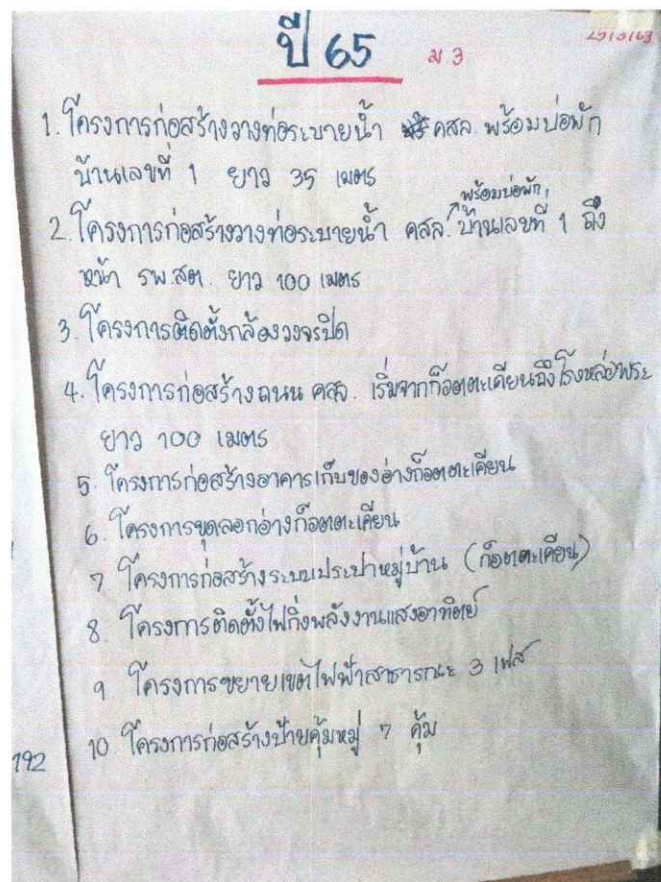 ปี 65 ม.3
1. โครงการก่อสร้างวางท่อระบายน้ำ คสล. พร้อมบ่อพัก
บ้านเลขที่ 1 ยาว 35 เมตร
พร้อมบ่อพัก
2. โครงการก่อสร้างวางท่อระบายน้ำ คสล. บ้านเลขที่ 1 ถึง
หน้า รพ.สต. ยาว 100 เมตร
3. โครงการติดตั้งกล้องวงจรปิด
4. โครงการก่อสร้างถนน คสล. เริ่มจากก็อตตะเคียนถึงโรงหล่อพระ
ยาว 100 เมตร
5. โครงการก่อสร้างอาคารเก็บของอ่างก็อตตะเคียน
6. โครงการขุดลอกอ่างก็อตตะเคียน
7 โครงการก่อสร้างระบบประปาหมู่บ้าน (ก็อตตะเคียน)
8. โครงการติดตั้งไฟกิ่งพลังงานแสงอาทิตย์
9. โครงการขยายเขตไฟฟ้าสาธารณะ 3 เฟส
10 โครงการก่อสร้างป้ายคุ้มหมู่ 7 คุ้ม
192